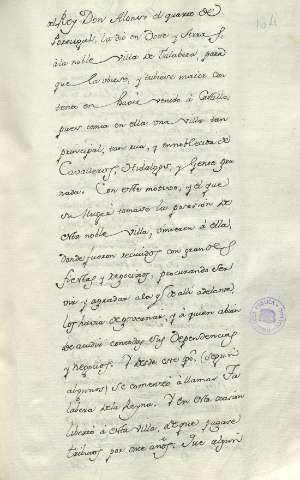 104
el Rey Don Alonso el quarto de
Portugal, la dió en Dote y Arras
à la noble Villa de Talabera, para
que la obiese, y tubiese maior con
tento en haver venido à Castilla,
pues tenia en ella una Villa tan
principal, tan rica, y ennoblecida de
Cavalleros, Hidalgos, y Gente gra
nada. Con este motivo, y el que
su Muger tomase la posesion de
esta noble Villa, vinieron à ella,
donde fueron recividos con grandes
fiestas y regocijos, procurando ser
vir y agradar à los q.e de alli adelante
los havia de governar, y à quien abian
de acudir con todas sus dependencias
y negocios. Y desde este tpo (segun
algunos) se comenzò à llamar Ta
labera de la Reyna. Y en esta ocasion
libertò à esta Villa, de que pagase
tributos por once años. Que algun